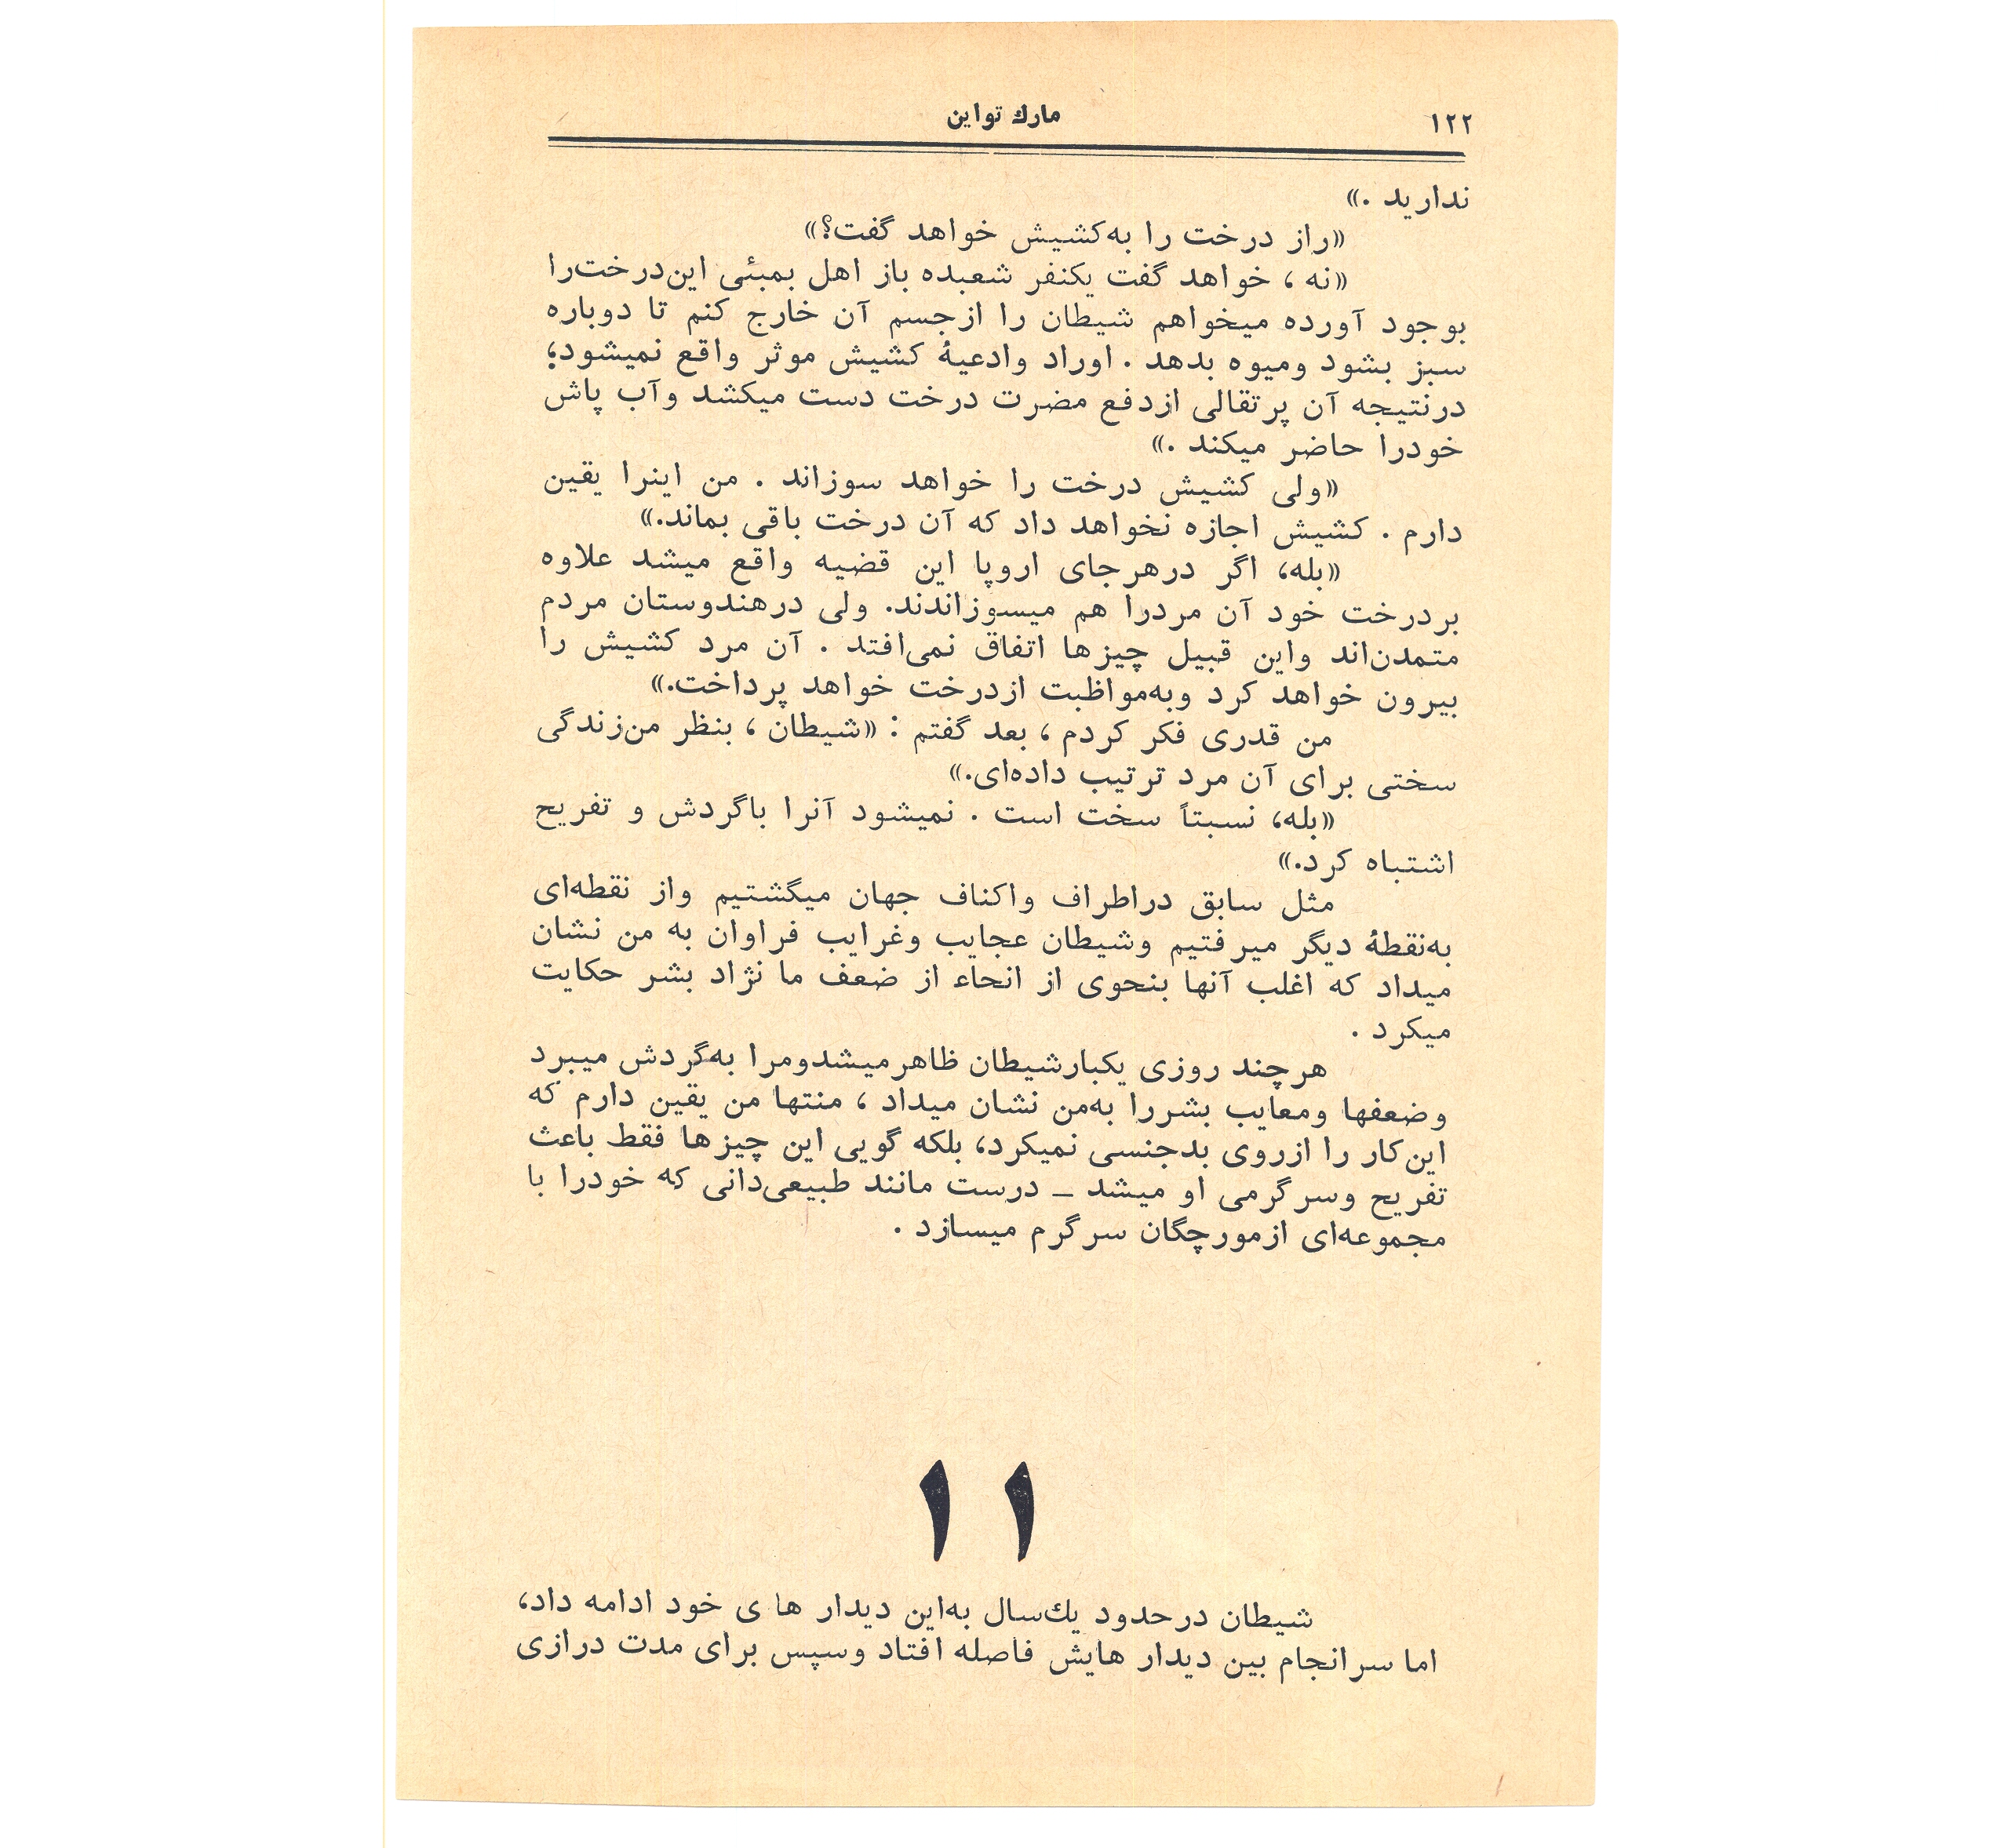 ۱۲۲
مارك تواین
ندارید .»
«راز درخت را به‌کشیش خواهد گفت؟»
«نه ، خواهد گفت یکنفر شعبده باز اهل بمبئی این‌درخت‌را
بوجود آورده میخواهم شیطان را ازجسم آن خارج کنم تا دوباره
سبز بشود ومیوه بدهد . اوراد وادعیهٔ کشیش موثر واقع نمیشود؛
درنتیجه آن پرتقالی ازدفع مضرت درخت دست میکشد وآب پاش
خودرا حاضر میکند .»
«ولی کشیش درخت را خواهد سوزاند . من اینرا یقین
دارم . کشیش اجازه نخواهد داد که آن درخت باقی بماند.»
«بله، اگر درهرجای اروپا این قضیه واقع میشد علاوه
بردرخت خود آن مردرا هم میسوزاندند. ولی درهندوستان مردم
متمدن‌اند واین قبیل چیزها اتفاق نمی‌افتد . آن مرد کشیش را
بیرون خواهد کرد وبه‌مواظبت ازدرخت خواهد پرداخت.»
من قدری فکر کردم ، بعد گفتم : «شیطان ، بنظر من‌زندگی
سختی برای آن مرد ترتیب داده‌ای.»
«بله، نسبتاً سخت است . نمیشود آنرا باگردش و تفریح
اشتباه کرد.»
مثل سابق دراطراف واکناف جهان میگشتیم واز نقطه‌ای
به‌نقطهٔ دیگر میرفتیم وشیطان عجایب وغرایب فراوان به من نشان
میداد که اغلب آنها بنحوی از انحاء از ضعف ما نژاد بشر حکایت
میکرد .
هرچند روزی یکبارشیطان ظاهرمیشدومرا به‌گردش میبرد
وضعفها ومعایب بشررا به‌من نشان میداد ، منتها من یقین دارم که
این‌کار را ازروی بدجنسی نمیکرد، بلکه گویی این چیزها فقط باعث
تفریح وسرگرمی او میشد ـ درست مانند طبیعی‌دانی که خودرا با
مجموعه‌ای ازمورچگان سرگرم میسازد .
۱۱
شیطان درحدود یك‌سال به‌این دیدار ها ی خود ادامه داد،
اما سرانجام بین دیدار هایش فاصله افتاد وسپس برای مدت درازی